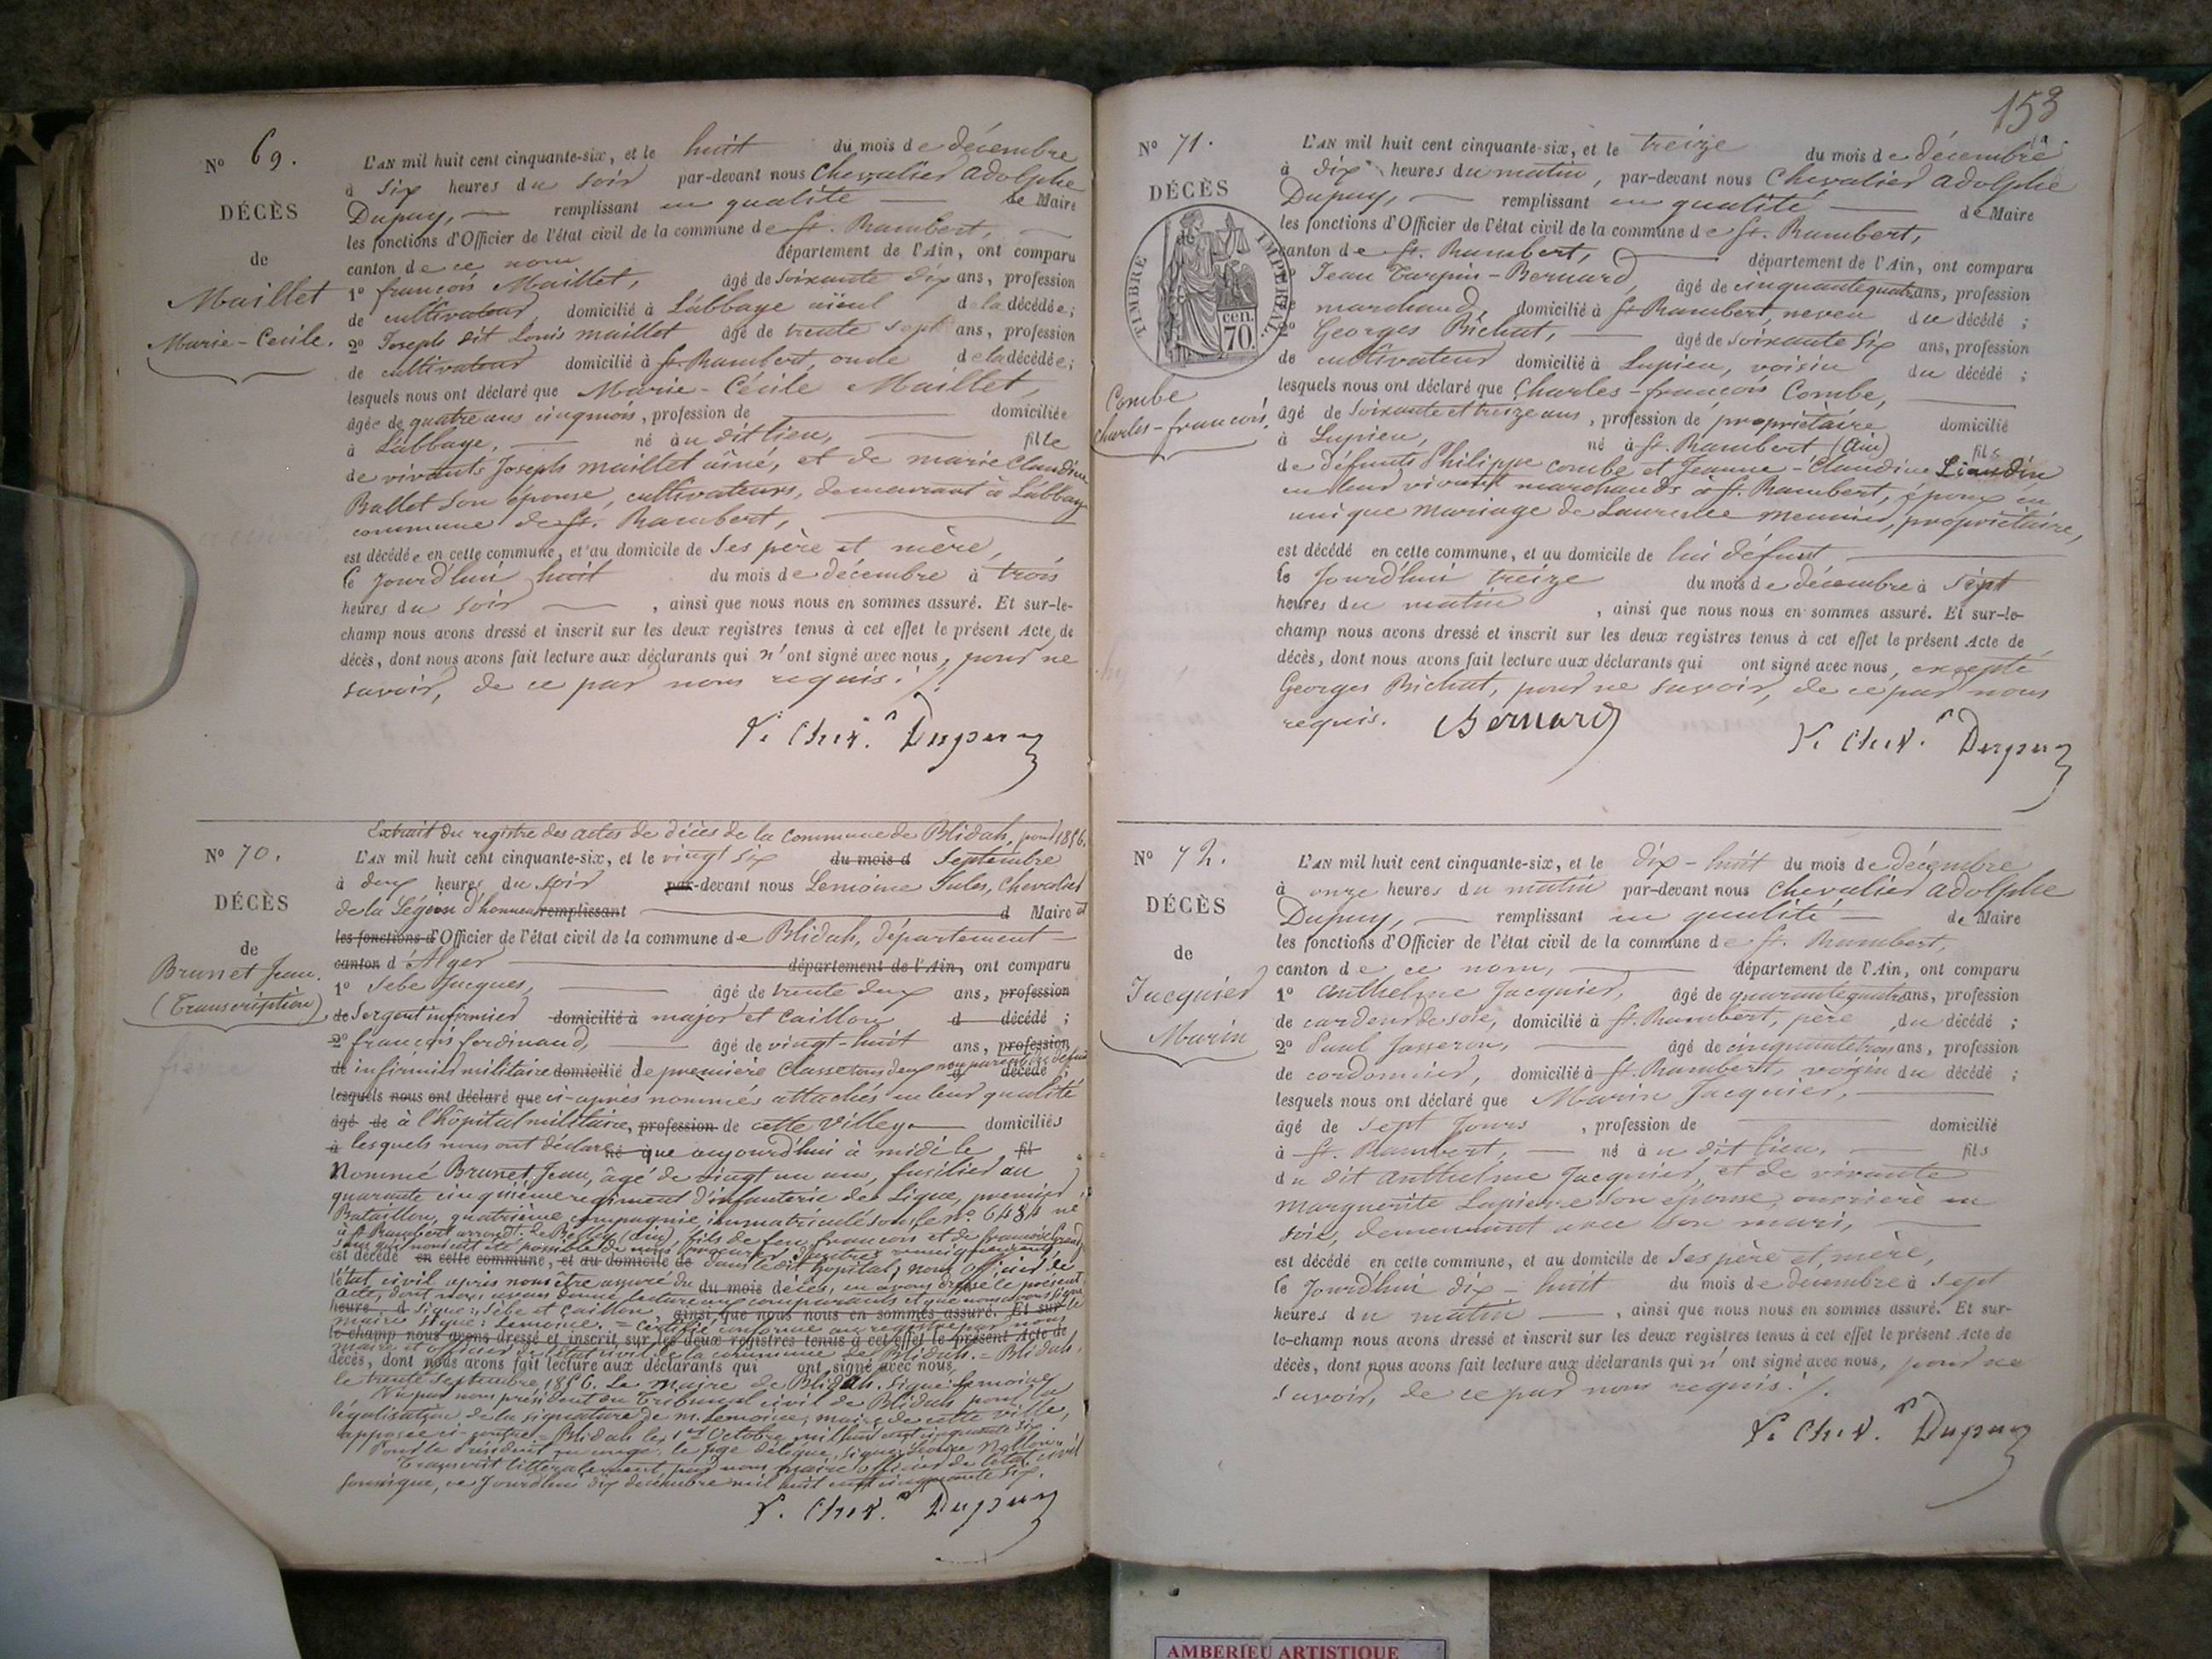 N° 69.
DÉCÈS
de
Maillet
Marie-Cecile.
L'AN mil huit cent cinquante-six, et le huit du mois de décembre
à six heures du soir par-devant nous Chevalier Adolphe
Dupuy, remplissant en qualité de Maire
les fonctions d'Officier de l'état civil de la commune de St. Rambert,
canton de ce nom département de l'Ain, ont comparu
1° françois Maillet, âgé de Soixante dix ans, profession
de cultivateur, domicilié à L'abbaye aïeul de la décédée;
2° Joseph dit Louis maillet âgé de trente sept ans, profession
de cultivateur domicilié à St. Rambert, oncle de la décédée;
lesquels nous ont déclaré que Marie-Cécile Maillet,
âgée de quatre ans cinq mois, profession de domiciliée
à L'abbaye, né au dit lieu, fille
de vivants Joseph maillet aîné, et de marie Claudine
Ballet son épouse, cultivateurs, demeurant à L'abbaye
commune de St. Rambert,
est décédée en cette commune, et au domicile de Ses père et mère,
le jourd'hui huit du mois de décembre à trois
heures du soir, ainsi que nous nous en sommes assuré. Et sur-le-
champ nous avons dressé et inscrit sur les deux registres tenus à cet effet le présent Acte de
décès, dont nous avons fait lecture aux déclarants qui n'ont signé avec nous, pour ne
savoir, de ce par nous requis.
Dupuy
Extrait du registre des actes de décès de la Commune de Blidah, pour 1856.
N° 70.
DÉCÈS
de
Brunet Jean.
(Transcription)
L'AN mil huit cent cinquante-six, et le vingt six du mois d Septembre
à deux heures du soir par-devant nous Lemoine Jules, Chevalier
de la Légion d'honneur remplissant d Maire et
les fonctions d'Officier de l'état civil de la commune de Blidah, département
canton d'Alger département de l'Ain, ont comparu
1° Sebe Jacques, âgé de trente deux ans, profession
de Sergent infirmier domicilié à major et Caillon d décédé;
2° françois ferdinand, âgé de vingt-huit ans, profession
de infirmier militaire domicilié de première classe tous deux non parents du défunt d décédé;
lesquels nous ont déclaré que ci-après nommés attachés en leur qualité
âgé de à l'hôpital militaire, profession de cette ville domiciliés
à lesquels nous ont déclaré né que aujourd'hui à midi le fil
Nommé Brunet Jean, âgé de vingt un ans, fusilier au
quarante cinquième regiment d'infanterie de Ligne, premier
Bataillon, quatrième compagnie, immatriculé sous le N°. 6484 né
à St Rambert arrondt. de Belley (Ain), fils de feu françois et de
sans qu'il nous ait été possible de nous procurer d'autres renseignements
est décédé en cette commune, et au domicile de dans le dit hopital; nous Officier de
l'état civil après nous être assuré du du mois décès, en avons dressé le présent
acte, dont nous avons donné lecture aux comparants et que nous avons signé
heure d Signé: Sèbe et Caillon, ainsi que nous nous en sommes assuré. Et sur le
maire Signé: Lemoine. = Certifié conforme au registre par nous
le champ nous avons dressé et inscrit sur les deux registres tenus à cet effet le présent Acte de
maire et officier de l'état civil de la commune de Blidah. = Blidah,
décès, dont nous avons fait lecture aux déclarants qui ont signé avec nous
le trente Septembre 1856. Le maire de Blidah. Signé: Lemoine
Vu par nous président du Tribunal civil de Blidah pour la
légalisation de la signature de m. Lemoine, maire de cette ville,
apposée ci-contre = Blidah le 1er Octobre mil huit cent cinquante six.
Pour le Président en congé, le juge délégué, Signé:
Transcrit littéralement par nous maire officier de l'état civil
soussigné, ce jourd'hui dix decembre mil huit cent cinquante six.
Dupuy
153
N° 71.
DÉCÈS
de
TIMBRE IMPÉRIAL.
cen. 70.
Combe
Charles-françois.
L'AN mil huit cent cinquante-six, et le treize du mois de décembre
à dix heures du matin, par-devant nous Chevalier Adolphe
Dupuy, remplissant en qualité de Maire
les fonctions d'Officier de l'état civil de la commune de St. Rambert,
canton de St. Rambert, département de l'Ain, ont comparu
1° Jean Turpin-Bernard, âgé de cinquante quatre ans, profession
de marchand, domicilié à St Rambert, neveu du décédé;
2° Georges Bichat, âgé de soixante six ans, profession
de cultivateur domicilié à Lupieu, voisin du décédé;
lesquels nous ont déclaré que Charles-françois Combe,
âgé de Soixante et treize ans, profession de propriétaire domicilié
à Lupieu, né à St. Rambert (Ain) fils
de défunts Philippe combe et Jeanne-Claudine Liaudin
en leur vivant marchands à St. Rambert, époux en
unique mariage de Laurence meunier, propriétaire,
est décédé en cette commune, et au domicile de lui défunt
le Jourd'hui treize du mois de décembre à sept
heures du matin, ainsi que nous nous en sommes assuré. Et sur-le-
champ nous avons dressé et inscrit sur les deux registres tenus à cet effet le présent Acte de
décès, dont nous avons fait lecture aux déclarants qui ont signé avec nous, excepté
Georges Bichat, pour ne savoir, de ce par nous
requis. Bernard
Dupuy
N° 72.
DÉCÈS
de
Jacquier
Marin
L'AN mil huit cent cinquante-six, et le dix-huit du mois de décembre
à onze heures du matin par-devant nous Chevalier Adolphe
Dupuy, remplissant en qualité de Maire
les fonctions d'Officier de l'état civil de la commune de St. Rambert,
canton de ce nom, département de l'Ain, ont comparu
1° Anthelme Jacquier, âgé de quarante quatre ans, profession
de cardeur de soie, domicilié à St. Rambert, père, du décédé;
2° Paul Jasseron, âgé de cinquante trois ans, profession
de cordonnier, domicilié à St. Rambert, voisin du décédé;
lesquels nous ont déclaré que Marin Jacquier,
âgé de sept jours, profession de domicilié
à St. Rambert, né au dit lieu, fils
du dit Anthelme Jacquier, et de vivante
marguerite Lapierre son épouse, ouvrière en
soie, demeurant avec son mari,
est décédé en cette commune, et au domicile de Ses père et mère,
le Jourd'hui dix-huit du mois de decembre à sept
heures du matin, ainsi que nous nous en sommes assuré. Et sur-
le-champ nous avons dressé et inscrit sur les deux registres tenus à cet effet le présent Acte de
décès, dont nous avons fait lecture aux déclarants qui n'ont signé avec nous, pour ne
savoir, de ce par nous requis.
Dupuy
AMBERIEU ARTISTIQUE